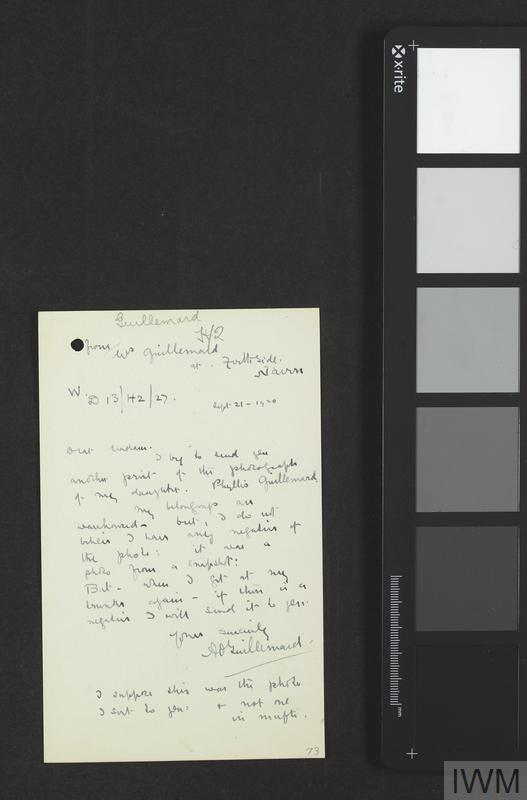 Guillemard
H/2
from Mrs Guillemard
at . Firthside.
Nairn
W.D 13/H2/27.
Sept 21 - 1920
Dear Madam.
I beg to send you
another print of the photograph
of my daughter. Phyllis Guillemard,
My belongings are
warehoused - but, I do not
believe I have any negative of
the photo: it was a
photo from a snapshot:
But - when I get at my
trunks again - if there is a
negative I will send it to you.
Yours sincerely
Guillemard
I suppose this was the photo
I sent to you: & not one
in mufti.
73
x·rite
mm
IWM